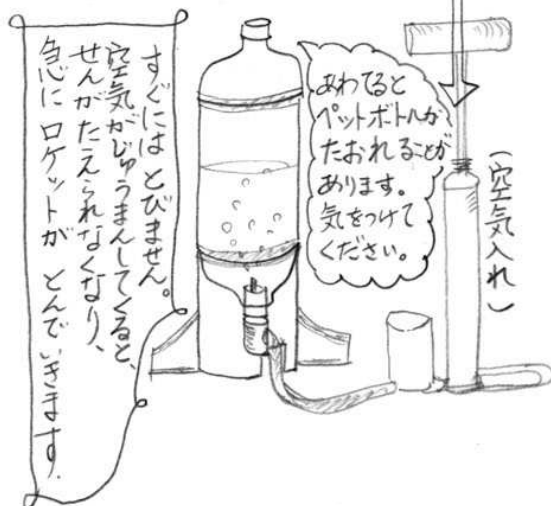 すぐには とびません。
空気がじゅうまんしてくると、
せんがたえられなくなり、
急に ロケットが とんでいきます.
あわてると
ペットボトルが
たおれることが
あります。
気をつけて
ください。
(空気入れ)